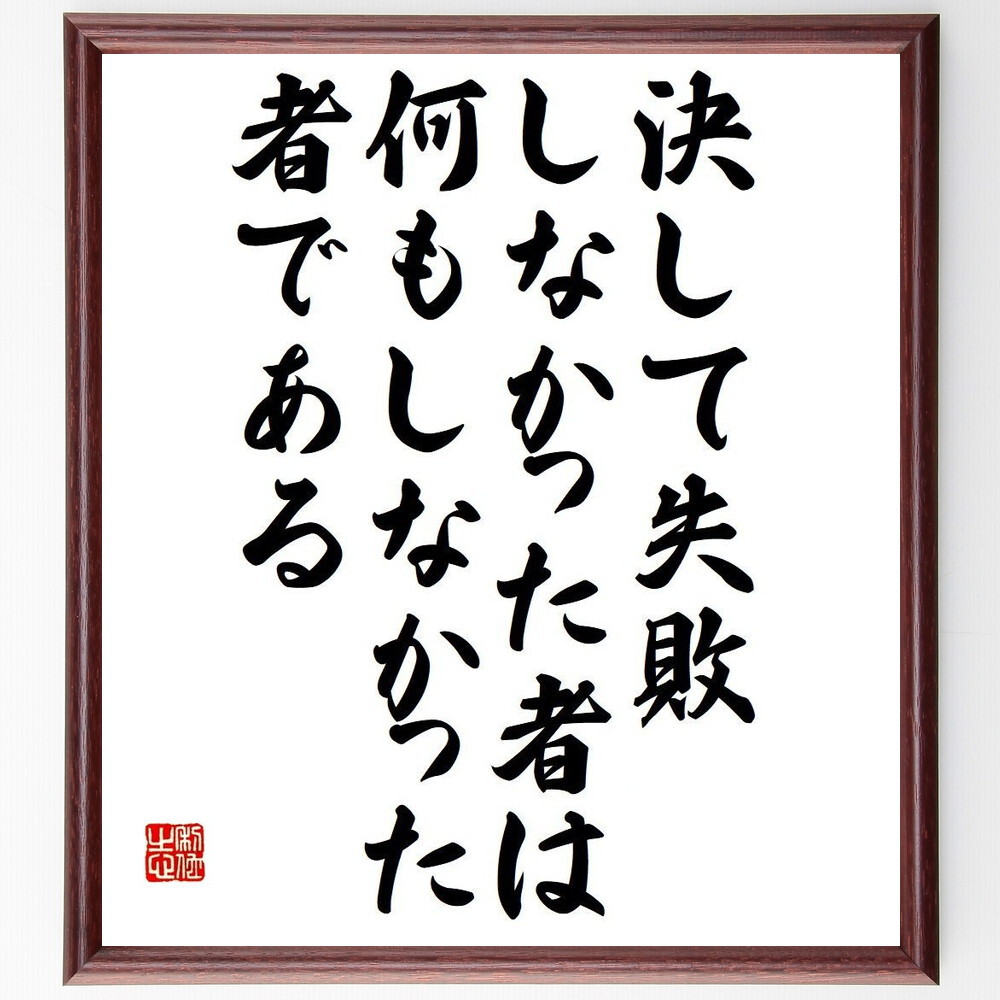 決して失敗
しなかった者は
何もしなかった
者である